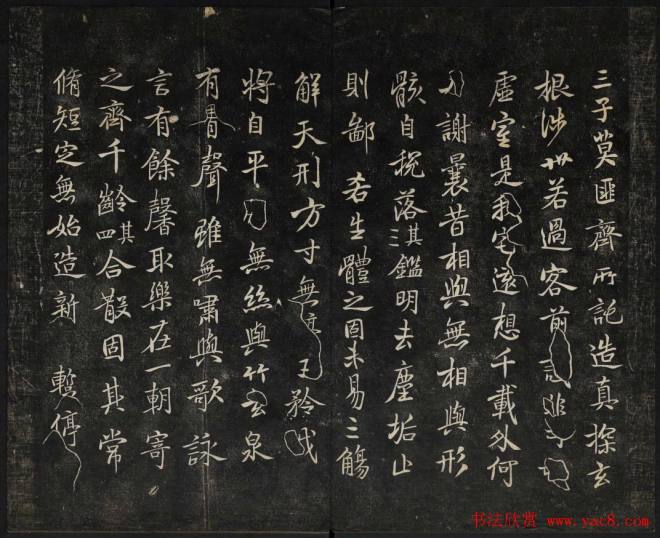 三子莫匪齊所託造真探玄
根涉世若過客前識非
虛室是我宅遠想千載外何
謝曩昔相與無相與形
骸自脫落其三鑑明去塵垢止
則鄙生體之固未易三觴
解天刑方寸無王矜伐
將自平無絲與竹玄泉
有聲雖無嘯與歌詠
言有餘馨取樂在一朝寄
之齊千齡其四合散固其常
脩短定無始造新暫停
书法欣赏 www.yac8.com